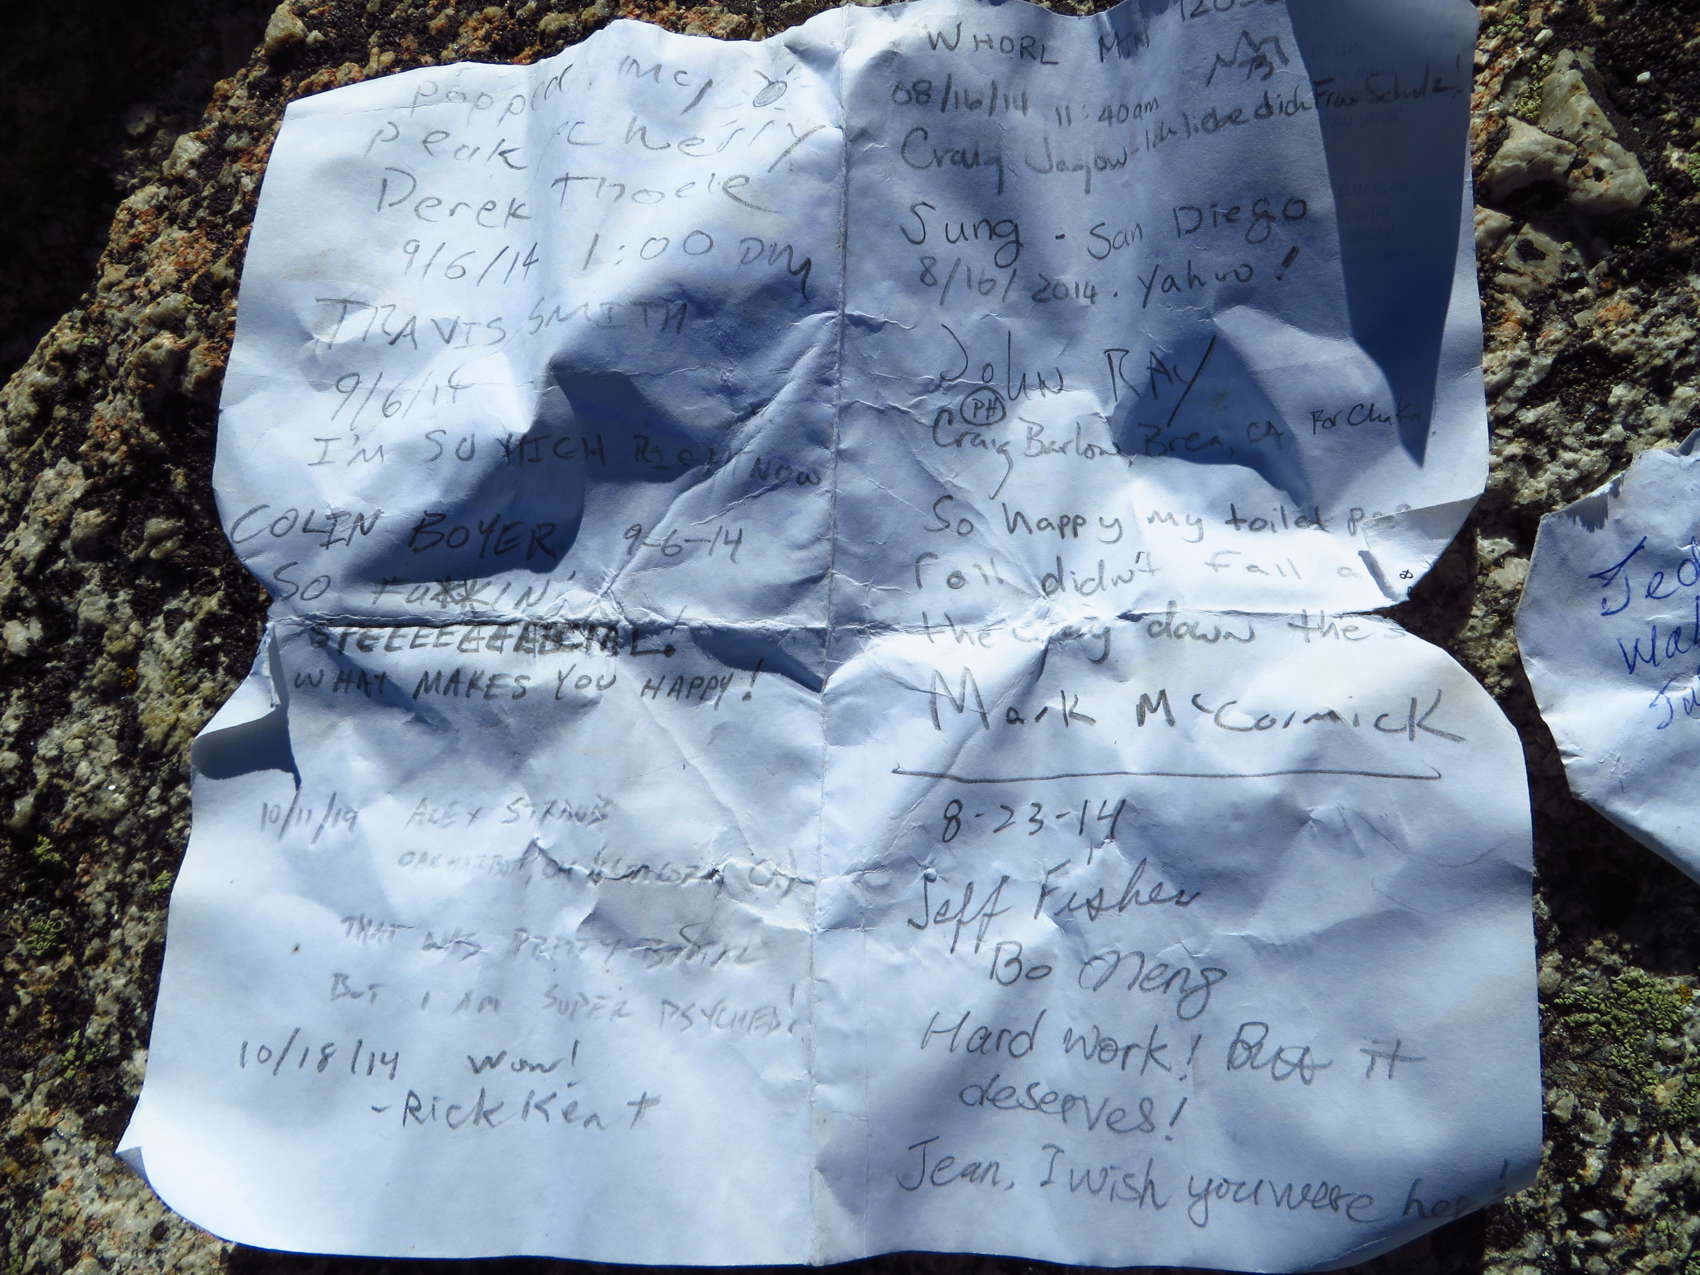 popped my
peak cherry
Derek Thode
9/6/14 1:00 pm
TRAVIS SMITH
9/6/14
I'M SO HIGH RIGHT NOW
COLIN BOYER 9-6-14
SO FU**KIN'
WHAT MAKES YOU HAPPY!
10/11/14 ALEX STRAUB
THAT WAS PRETTY
BUT I AM SUPER PSYCHED!
10/18/14 Wow!
-Rick Kent
WHORL MTN
08/16/14 11:40am
Craig Jagow - Ich liebe dich Frau Schulz!
Sung - San Diego
8/16/2014. Yahuo!
John RAY
PH
Craig Barlow, Brea, CA For Chuka!
So happy my toilet
roll didn't fall
the way down the
Mark McCormick
8-23-14
Jeff Fisher
Bo Meng
Hard work! But it
deserves!
Jean, I wish you were
Jed